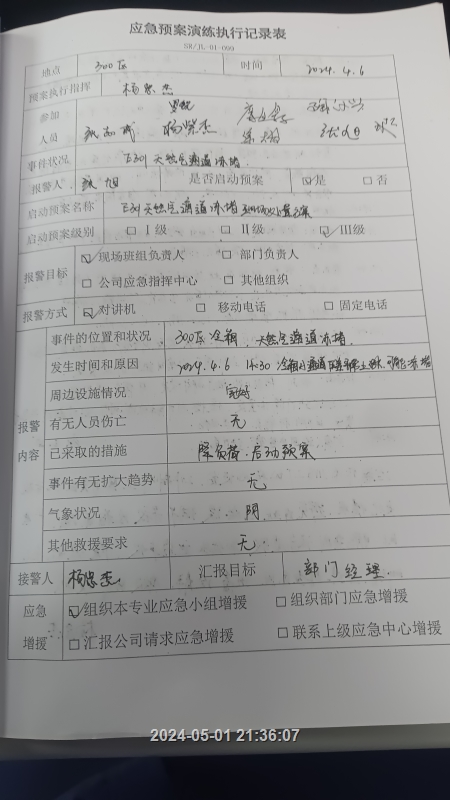 应急预案演练执行记录表
SX/JL-01-099
地点 300区 时间 2024.4.6
预案执行指挥 杨忠杰
参加
人员
事件状况 E391 天然气通道冻堵.
报警人 旭 是否启动预案 ☑是 □否
启动预案名称 E391天然气通道冻堵现场处置方案
启动预案级别 □Ⅰ级 □Ⅱ级 ☑Ⅲ级
报警目标 ☑现场班组负责人 □部门负责人
□公司应急指挥中心 □其他组织
报警方式 ☑对讲机 □移动电话 □固定电话
报警
内容
事件的位置和状况 300区冷箱，天然气通道冻堵.
发生时间和原因 2024.4.6 14:30 冷箱 通道 冻堵
周边设施情况 完好
有无人员伤亡 无
已采取的措施 降负荷.启动预案
事件有无扩大趋势 无
气象状况 阴
其他救援要求 无.
接警人 杨忠杰 汇报目标 部门经理.
应急
增援
☑组织本专业应急小组增援 □组织部门应急增援
□汇报公司请求应急增援 □联系上级应急中心增援
2024-05-01 21:36:07